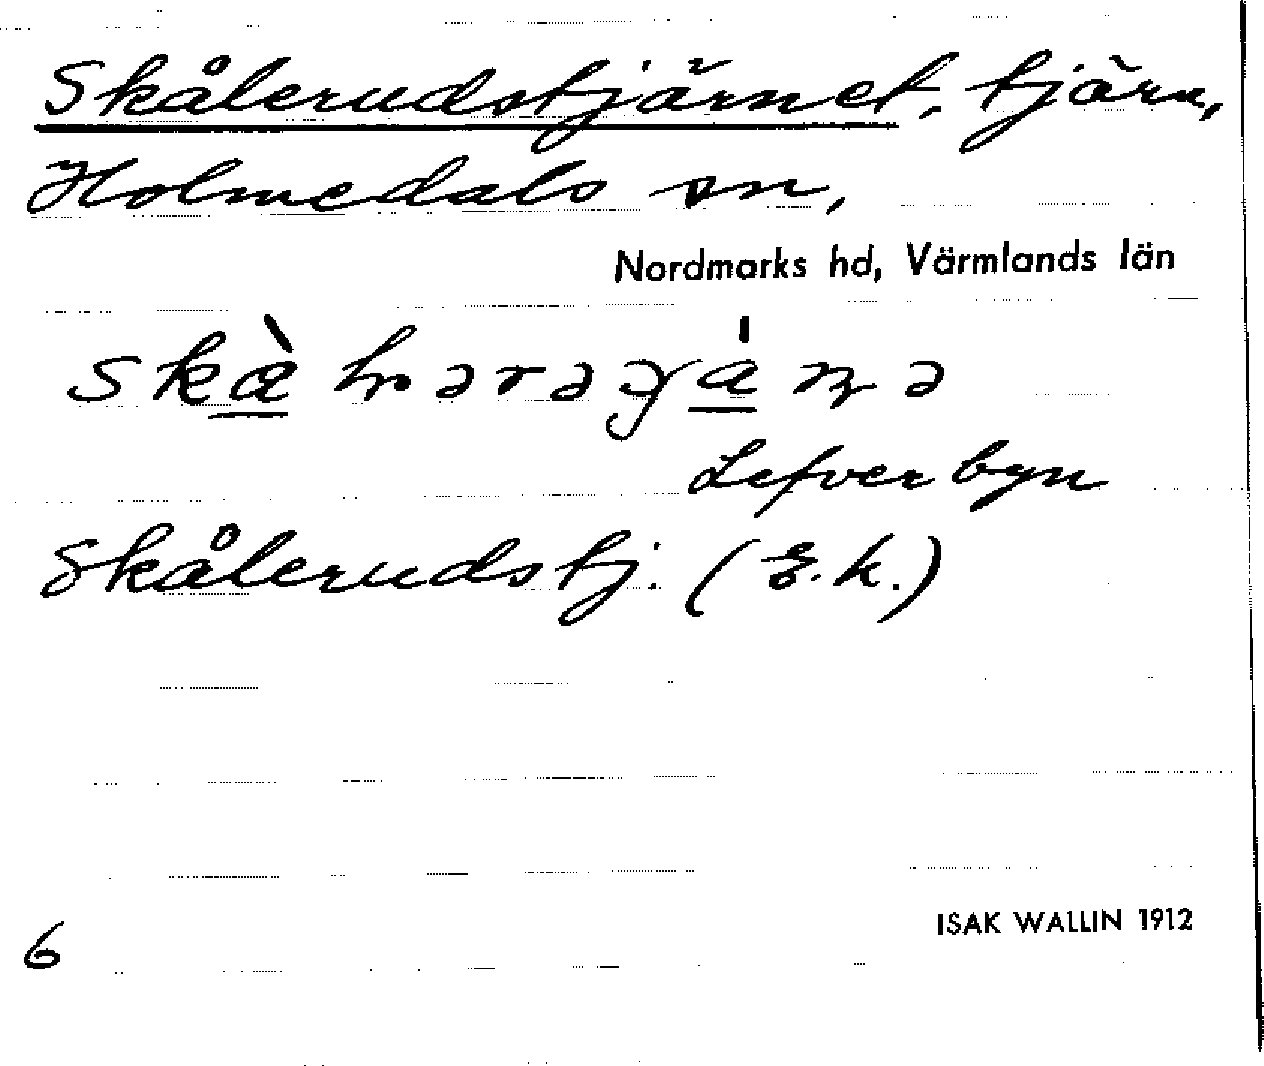 Skålerudstjärnet, tjärn,
Holmedals sn,
Nordmarks hd, Värmlands län
Lefverbyn
Skålerudstj. (E.k.)
ISAK WALLIN 1912
6